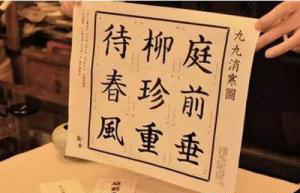 九九消寒圖
庭前垂
柳珍重
待春風